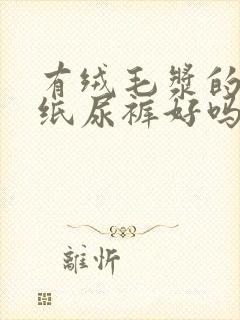 有绒毛浆的
纸尿裤好吗
離忻